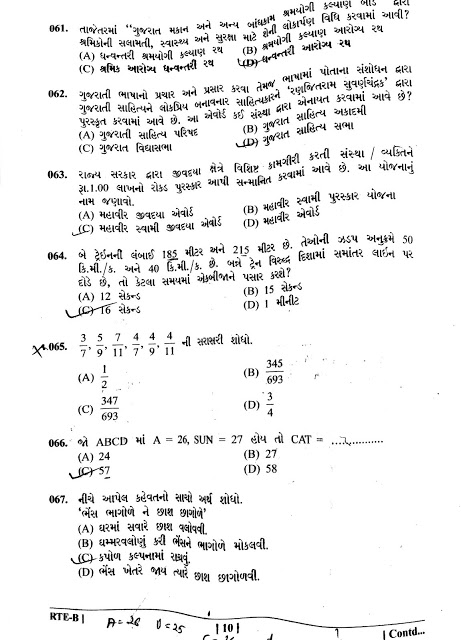 061. તાજેતરમાં "ગુજરાત મકાન અને અન્ય બાંધકામ શ્રમયોગી કલ્યાણ બોર્ડ દ્વારા
શ્રમિકોની સલામતી, સ્વાસ્થ્ય અને સુરક્ષા માટે શેની લોકાર્પણ વિધિ કરવામાં આવી?
(A) ધન્વન્તરી શ્રમયોગી કલ્યાણ રથ (B) શ્રમયોગી કલ્યાણ આરોગ્ય રથ
(C) શ્રમિક આરોગ્ય ધન્વન્તરી રથ (D) ધન્વન્તરી આરોગ્ય રથ
062. ગુજરાતી ભાષાનો પ્રચાર અને પ્રસાર કરવા તેમજ ભાષામાં પોતાના સંશોધન દ્વારા
ગુજરાતી સાહિત્યને લોકપ્રિય બનાવનાર સાહિત્યકારને 'રણજિતરામ સુવર્ણચંદ્રક' દ્વારા
પુરસ્કૃત કરવામાં આવે છે. આ એવોર્ડ કઈ સંસ્થા દ્વારા એનાયત કરવામાં આવે છે?
(A) ગુજરાતી સાહિત્ય પરિષદ (B) ગુજરાત સાહિત્ય અકાદમી
(C) ગુજરાત વિદ્યાસભા (D) ગુજરાત સાહિત્ય સભા
063. રાજ્ય સરકાર દ્વારા જીવદયા ક્ષેત્રે વિશિષ્ટ કામગીરી કરતી સંસ્થા / વ્યક્તિને
રૂા.1.00 લાખનો રોકડ પુરસ્કાર આપી સન્માનિત કરવામાં આવે છે. આ યોજનાનું
નામ જણાવો.
(A) મહાવીર જીવદયા એવોર્ડ (B) મહાવીર સ્વામી પુરસ્કાર યોજના
(C) મહાવીર સ્વામી જીવદયા એવોર્ડ (D) મહાવીર એવોર્ડ
064. બે ટ્રેઈનની લંબાઈ 185 મીટર અને 215 મીટર છે. તેઓની ઝડપ અનુક્રમે 50
કિ.મી./ક. અને 40 કિ.મી./ક. છે. બન્ને ટ્રેન વિરુદ્ધ દિશામાં સમાંતર લાઈન પર
દોડે છે, તો કેટલા સમયમાં એકબીજાને પસાર કરશે?
(A) 12 સેકન્ડ (B) 15 સેકન્ડ
(C) 16 સેકન્ડ (D) 1 મીનીટ
065. 3/7, 5/9, 7/11, 4/7, 4/9, 4/11 ની સરાસરી શોધો.
(A) 1/2 (B) 345/693
(C) 347/693 (D) 3/4
066. જો ABCD માં A = 26, SUN = 27 હોય તો CAT = ..............
(A) 24 (B) 27
(C) 57 (D) 58
067. નીચે આપેલ કહેવતનો સાચો અર્થ શોધો.
'ભેંસ ભાગોળે ને છાશ છાગોળે'
(A) ઘરમાં સવારે છાશ વલોવવી.
(B) ઘમ્મરવલોણું કરી ભેંસને ભાગોળે મોકલવી.
(C) કપોળ કલ્પનામાં રાચવું.
(D) ભેંસ ખેતરે જાય ત્યારે છાશ છાગોળવી.
RTE-B] [10] [Contd...
A=26 U=25